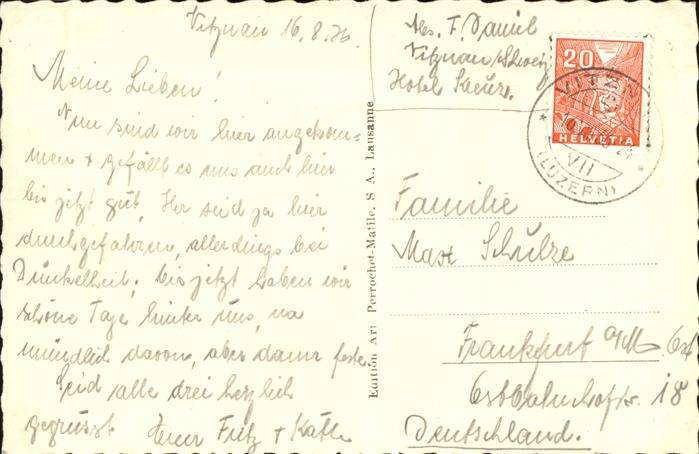 Vitznau 16.8.36
Meine Lieben!
Nun sind wir hier angekom-
men + gefällt es uns auch hier
bis jetzt gut, Ihr seid ja hier
durchgefahren, allerdings bei
Dunkelheit; bis jetzt haben wir
schöne Tage hinter uns, na
mündlich davon, aber dann feste.
Seid alle drei herzlich
gegrüsst Fritz + Käthe
Edition Art Perrochet-Matile, S A., Lausanne
Abs. F. Daniel
Vitznau/Schweiz
Hotel Kreuz.
20
HELVETIA
VITZNAU
VII
(LUZERN)
Familie
Max Schulze
Frankfurt a/M
Ostbahnhofstr. 18
Deutschland.